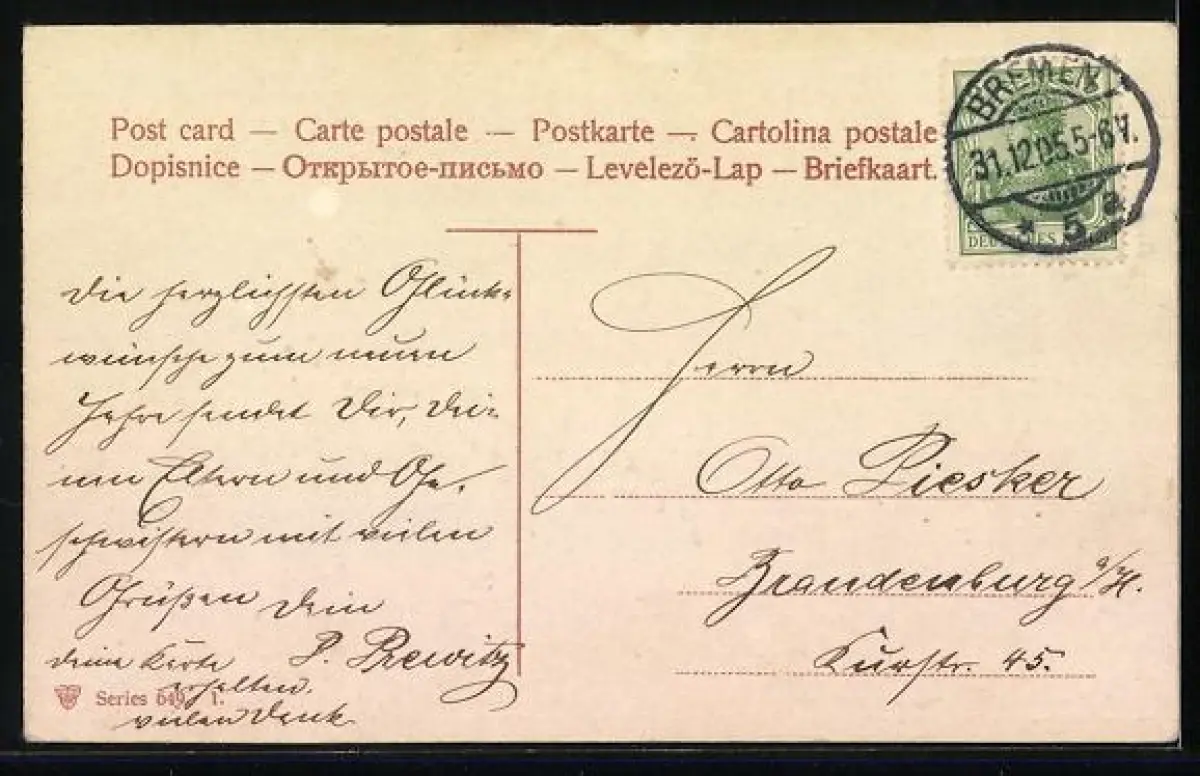 Post card — Carte postale — Postkarte — Cartolina postale
Dopisnice — Открытое-письмо — Levelező-Lap — Briefkaart.
BREMEN
31.12.05.5-6V.
* 5 a
DEUTSCHES
Die herzlichsten Glück-
wünsche zum neuen
Jahre sendet Dir, Dei-
nen Eltern und Ge-
schwistern mit vielen
Grüßen Dein
P. Prewitz
Deine Karte
erhalten.
vielen Dank
Series 649. 1.
Herrn
Otto Piesker
Brandenburg a/H.
Kurstr. 45.